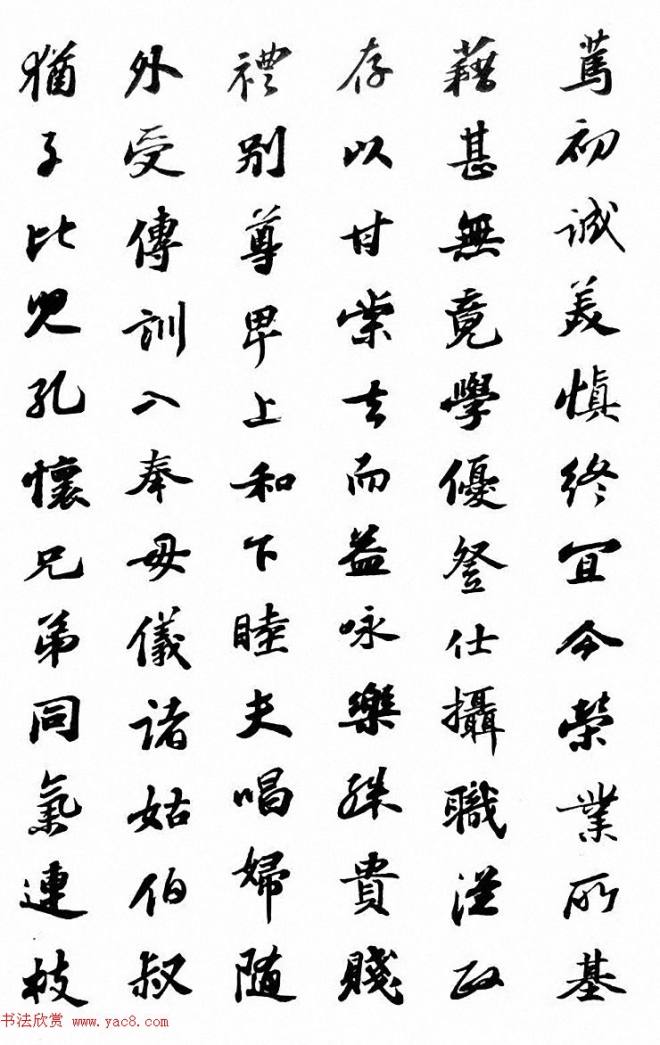 篤初誠美慎終宜令榮業所基
藉甚無竟學優登仕攝職從政
存以甘棠去而益咏樂殊貴賤
禮別尊卑上和下睦夫唱婦随
外受傅訓入奉母儀諸姑伯叔
猶子比兒孔懷兄弟同氣連枝
书法欣赏 www.yac8.com